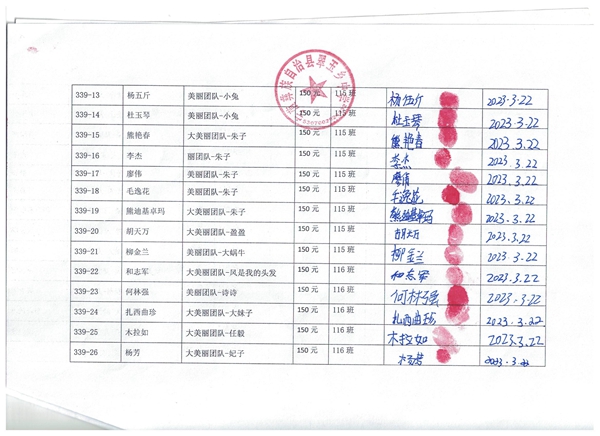 族自治县翠玉乡中
339-13 杨五斤 美丽团队-小兔 150 元 116 班 杨伍斤 2023.3.22
339-14 杜玉琴 美丽团队-小兔 150 元 116 班 杜玉琴 2023.3.22
339-15 熊艳春 大美丽团队-朱子 150 元 115 班 熊艳春 2023.3.22
339-16 李杰 丽团队-朱子 150 元 115 班 李杰 2023.3.22
339-17 廖伟 美丽团队-朱子 150 元 115 班 2023.3.22
339-18 毛逸花 美丽团队-朱子 150 元 115 班 毛逸花 2023.3.22
339-19 熊迪基卓玛 大美丽团队-朱子 150 元 115 班 2023.3.22
339-20 胡天万 大美丽团队-盈盈 150 元 115 班 胡天万 2023.3.22
339-21 柳金兰 美丽团队-大蜗牛 150 元 115 班 柳金兰 2023.3.22
339-22 和志军 大美丽团队-风是我的头发 150 元 116 班 和志军 2023.3.22
339-23 何林强 美丽团队-诗诗 150 元 116 班 何林强 2023.3.22
339-24 扎西曲珍 大美丽团队-大妹子 150 元 116 班 扎西曲珍 2023.3.22
339-25 木拉如 大美丽团队-任毅 150 元 116 班 木拉如 2023.3.22
339-26 杨芳 大美丽团队-妃子 150 元 116 班 杨芳 2023.3.22